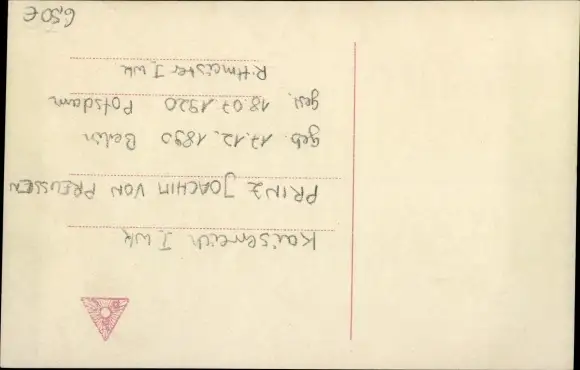 Kaiserreich I WK
PRINZ JOACHIM VON PREUSSEN
geb. 17.12.1890 Berlin
gest. 18.07.1920 Potsdam
Rittmeister I WK
6,50 €